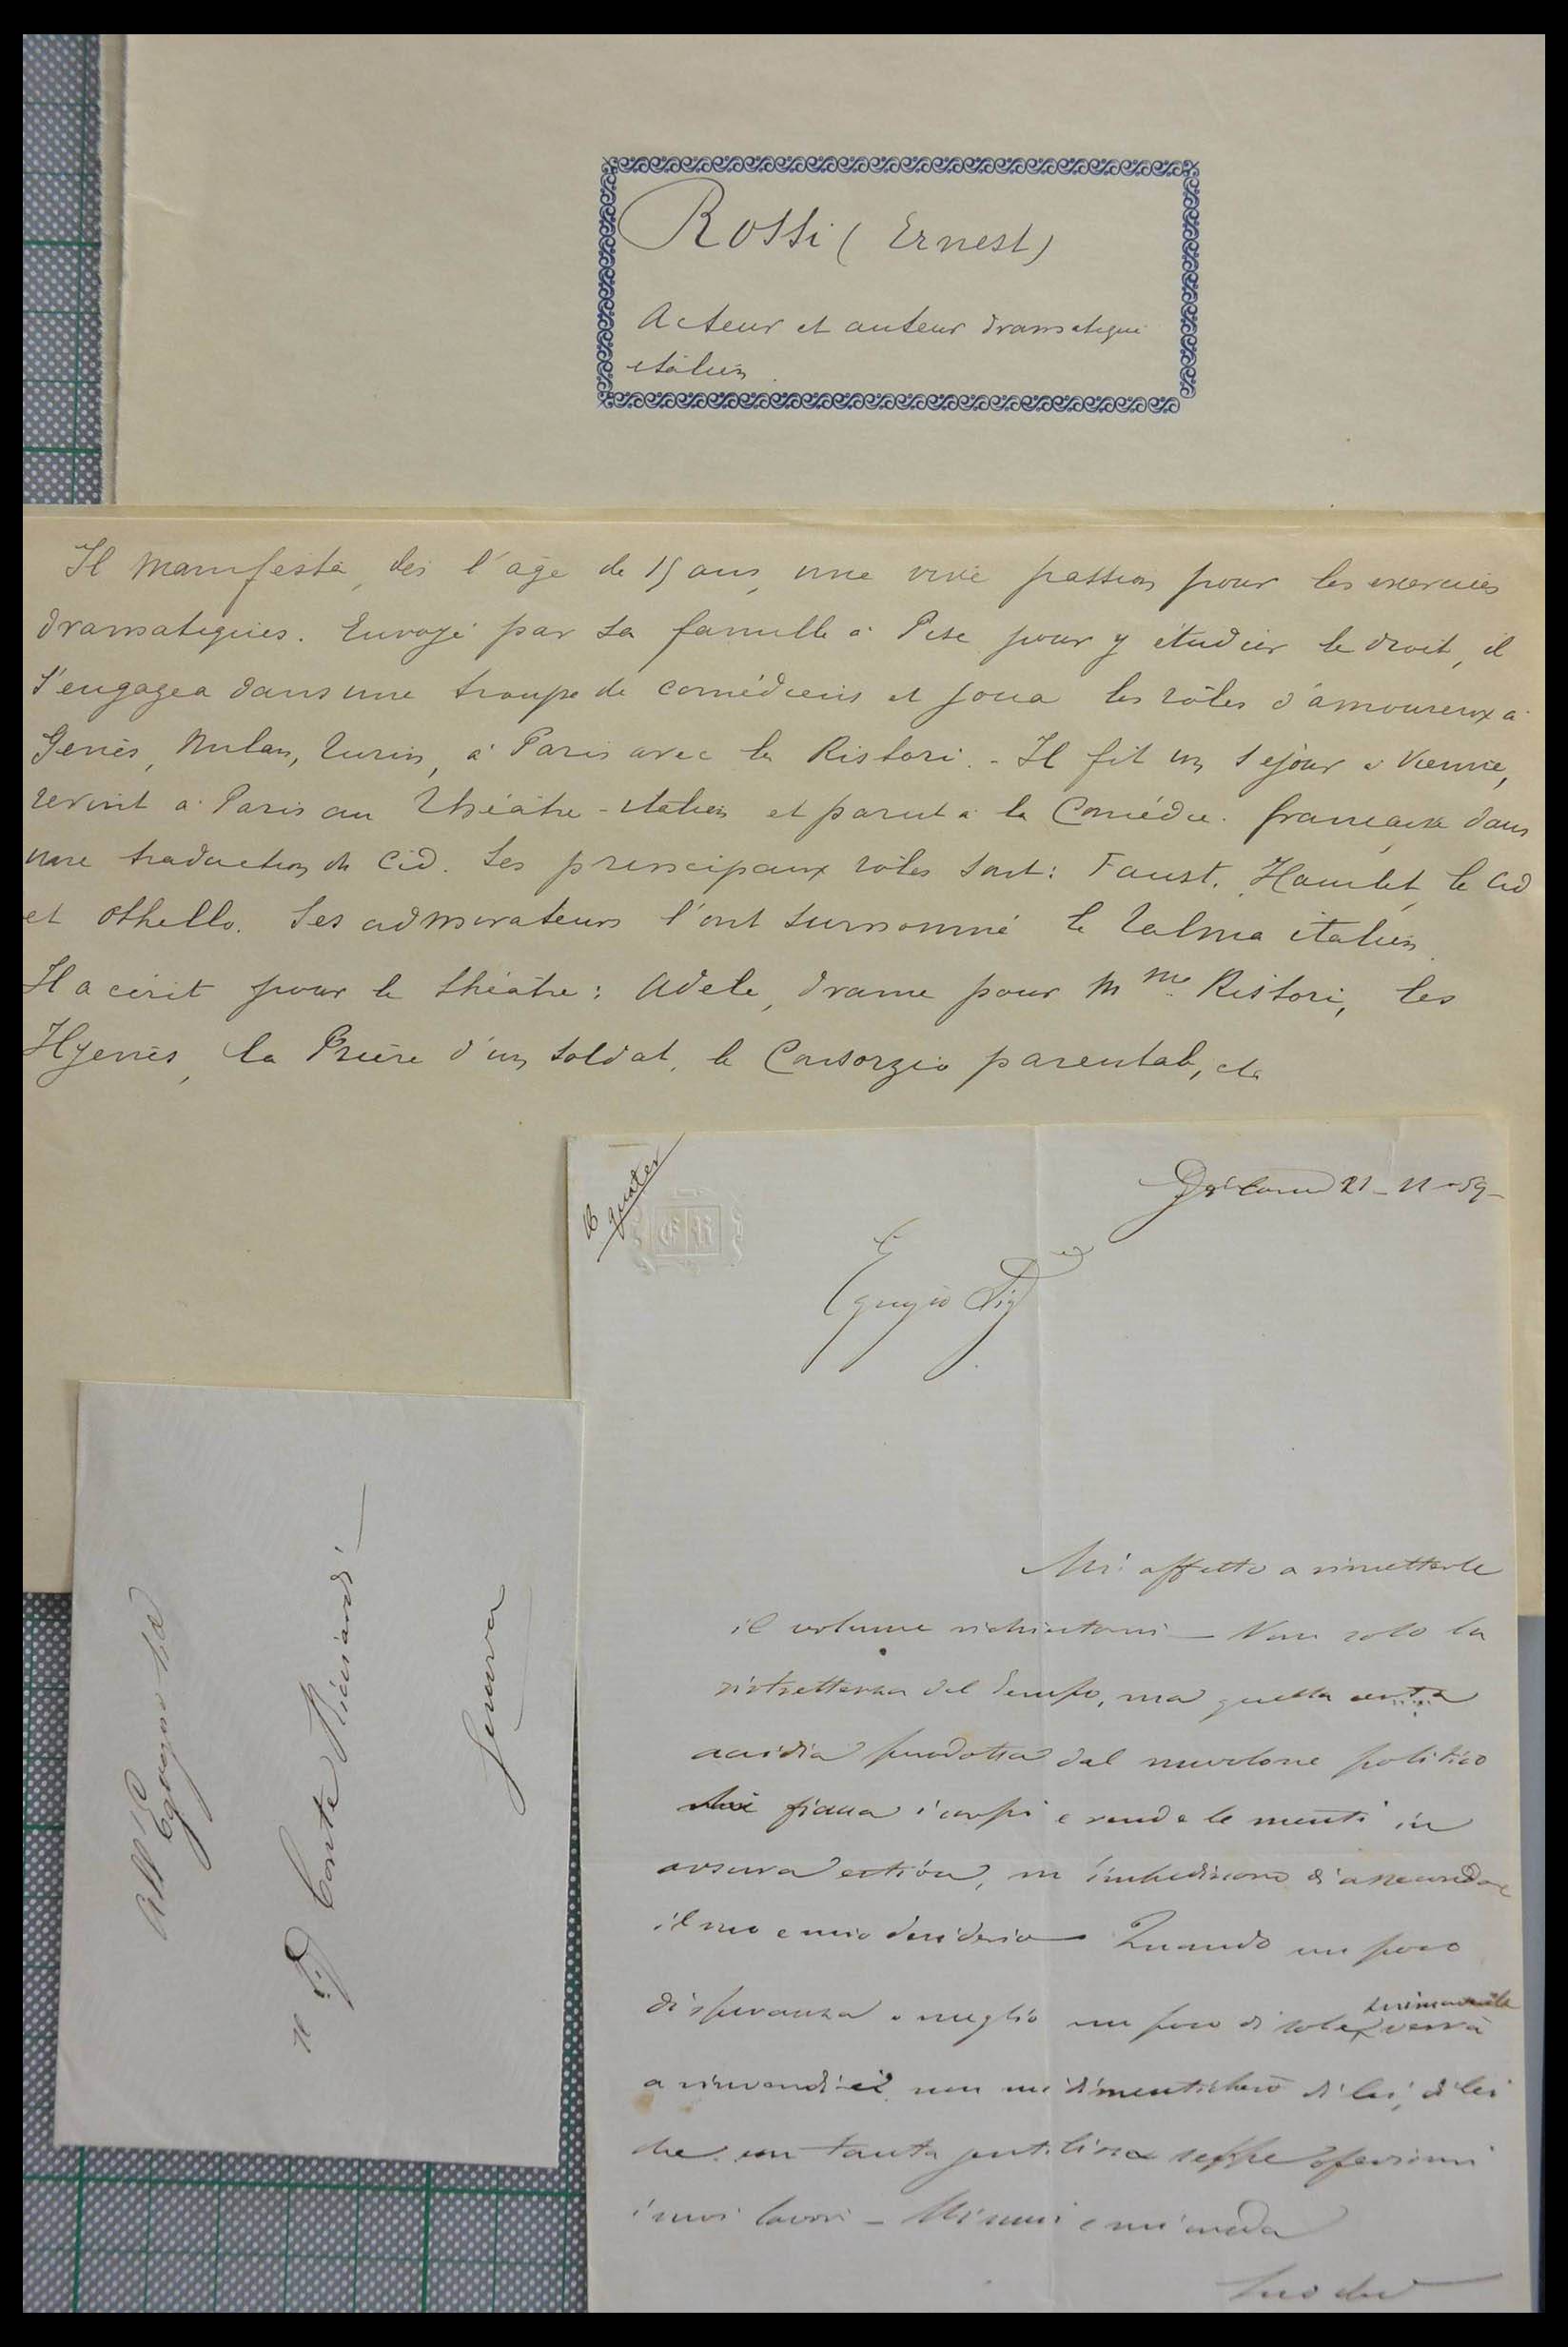 Rossi (Ernest)
Acteur et auteur dramatique
italien.
Il manifesta, dès l'âge de 15 ans, une vive passion pour les exercices
dramatiques. Envoyé par sa famille à Pise pour y étudier le droit, il
s'engagea dans une troupe de comédiens et joua les rôles d'amoureux à
Gênes, Milan, Turin, à Paris avec la Ristori. - Il fit un séjour à Vienne,
revint à Paris au Théâtre-italien et parut à la Comédie française dans
une traduction du Cid. Ses principaux rôles sont: Faust, Hamlet, le Cid
et Othello. Ses admirateurs l'ont surnommé le Talma italien.
Il a écrit pour le théâtre: Adele, drame pour Mme Ristori, les
Hyènes, la Prière d'un soldat, le Consorzio parentale, etc
quater
ER
21-11-59-
Egregio Sig
Mi affretto a rimetterle
il volume richiestomi - Non solo la
ristrettezza del tempo, ma quella certa
accidia prodotta dal nuvolone politico
fiacca i corpi e rende le menti in
, m'impediscono di assecondare
il suo e mio desiderio - Quando un poco
di speranza o meglio un poco di sole verrà
non mi dimenticherò di lei, di lei
che con tanta gentilezza seppe offerirmi
i suoi lavori - Mi ami e mi creda
Suo
All' Egregio
Il Sig Conte Ricciardi -
Genova